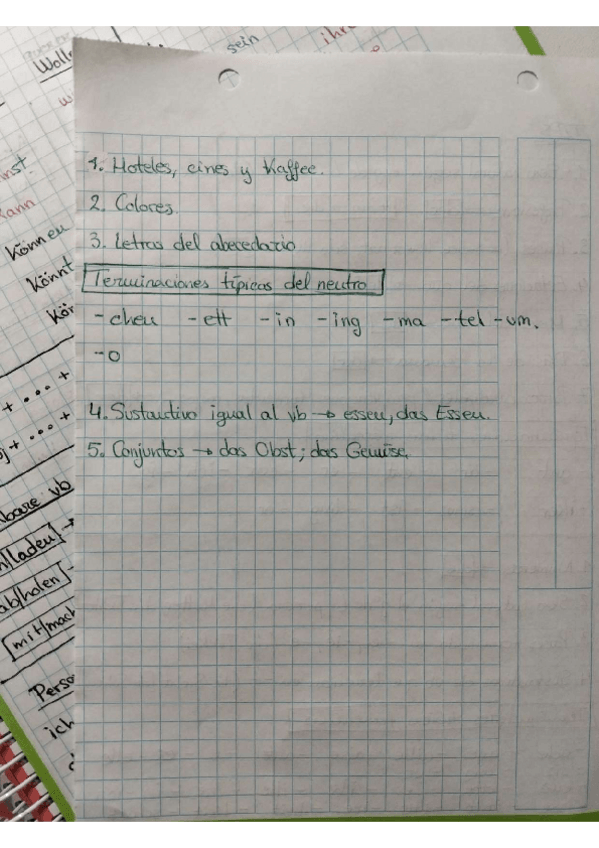 Wolle
sein
ihr
w
inst.
kann
können
könnt
kör
+ ... +
) + ... +
bare vb
/laden →
ab/holen
mit/mach
Perso
ich
1. Hoteles, cines y Kaffee.
2. Colores.
3. Letras del abecedario
Terminaciones típicas del neutro
-chen -ett -in -ing -ma -tel -um.
-o
4. Sustantivo igual al vb → essen, das Essen.
5. Conjuntos → das Obst; das Gemüse.